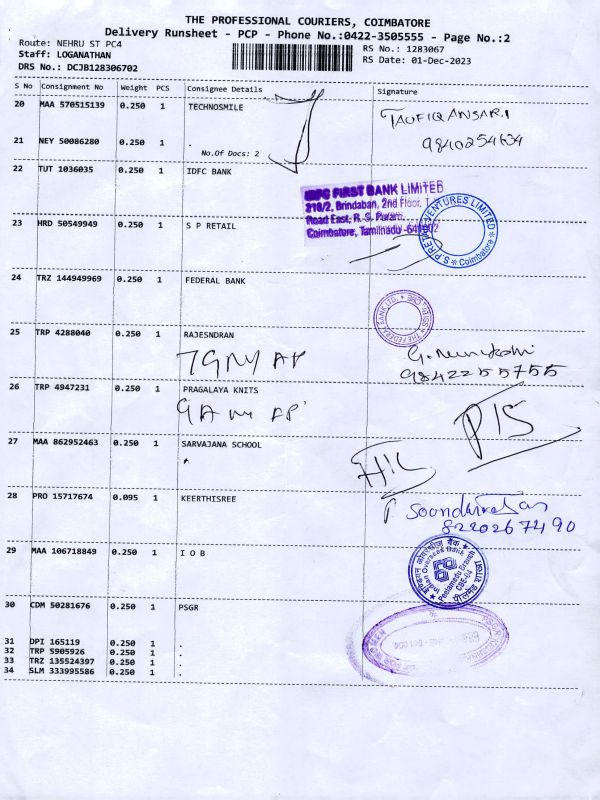 THE PROFESSIONAL COURIERS, COIMBATORE
Delivery Runsheet - PCP - Phone No.:0422-3505555 - Page No.:2
Route: NEHRU ST PC4 RS No.: 1283067
Staff: LOGANATHAN RS Date: 01-Dec-2023
DRS No.: DCJB128306702
S No Consignment No Weight PCS Consignee Details Signature
20 MAA 570515139 0.250 1 TECHNOSMILE TAUFIQ ANSARI
21 NEY 50086280 0.250 1 . 9840254634
No.Of Docs: 2
22 TUT 1036035 0.250 1 IDFC BANK
IDFC FIRST BANK LIMITED
218/2, Brindaban, 2nd Floor, T.
Road East, R. S. Puram,
Coimbatore, Tamilnadu - 641002
VENTURES LIMITED * Coimbatore *
23 HRD 50549949 0.250 1 S P RETAIL
24 TRZ 144949969 0.250 1 FEDERAL BANK
* THE FEDERAL BANK LTD. *
25 TRP 4288040 0.250 1 RAJESNDRAN
9842255755
26 TRP 4947231 0.250 1 PRAGALAYA KNITS
P15
27 MAA 862952463 0.250 1 SARVAJANA SCHOOL
28 PRO 15717674 0.095 1 KEERTHISREE
8220267490
29 MAA 106718849 0.250 1 I O B
इण्डियन ओवरसीज़ बैंक
Indian Overseas Bank
Peelamedu Branch
CBE-04
30 CDM 50281676 0.250 1 PSGR
31 DPI 165119 0.250 1 .
32 TRP 5905926 0.250 1 .
33 TRZ 135524397 0.250 1 .
34 SLM 333995586 0.250 1 .